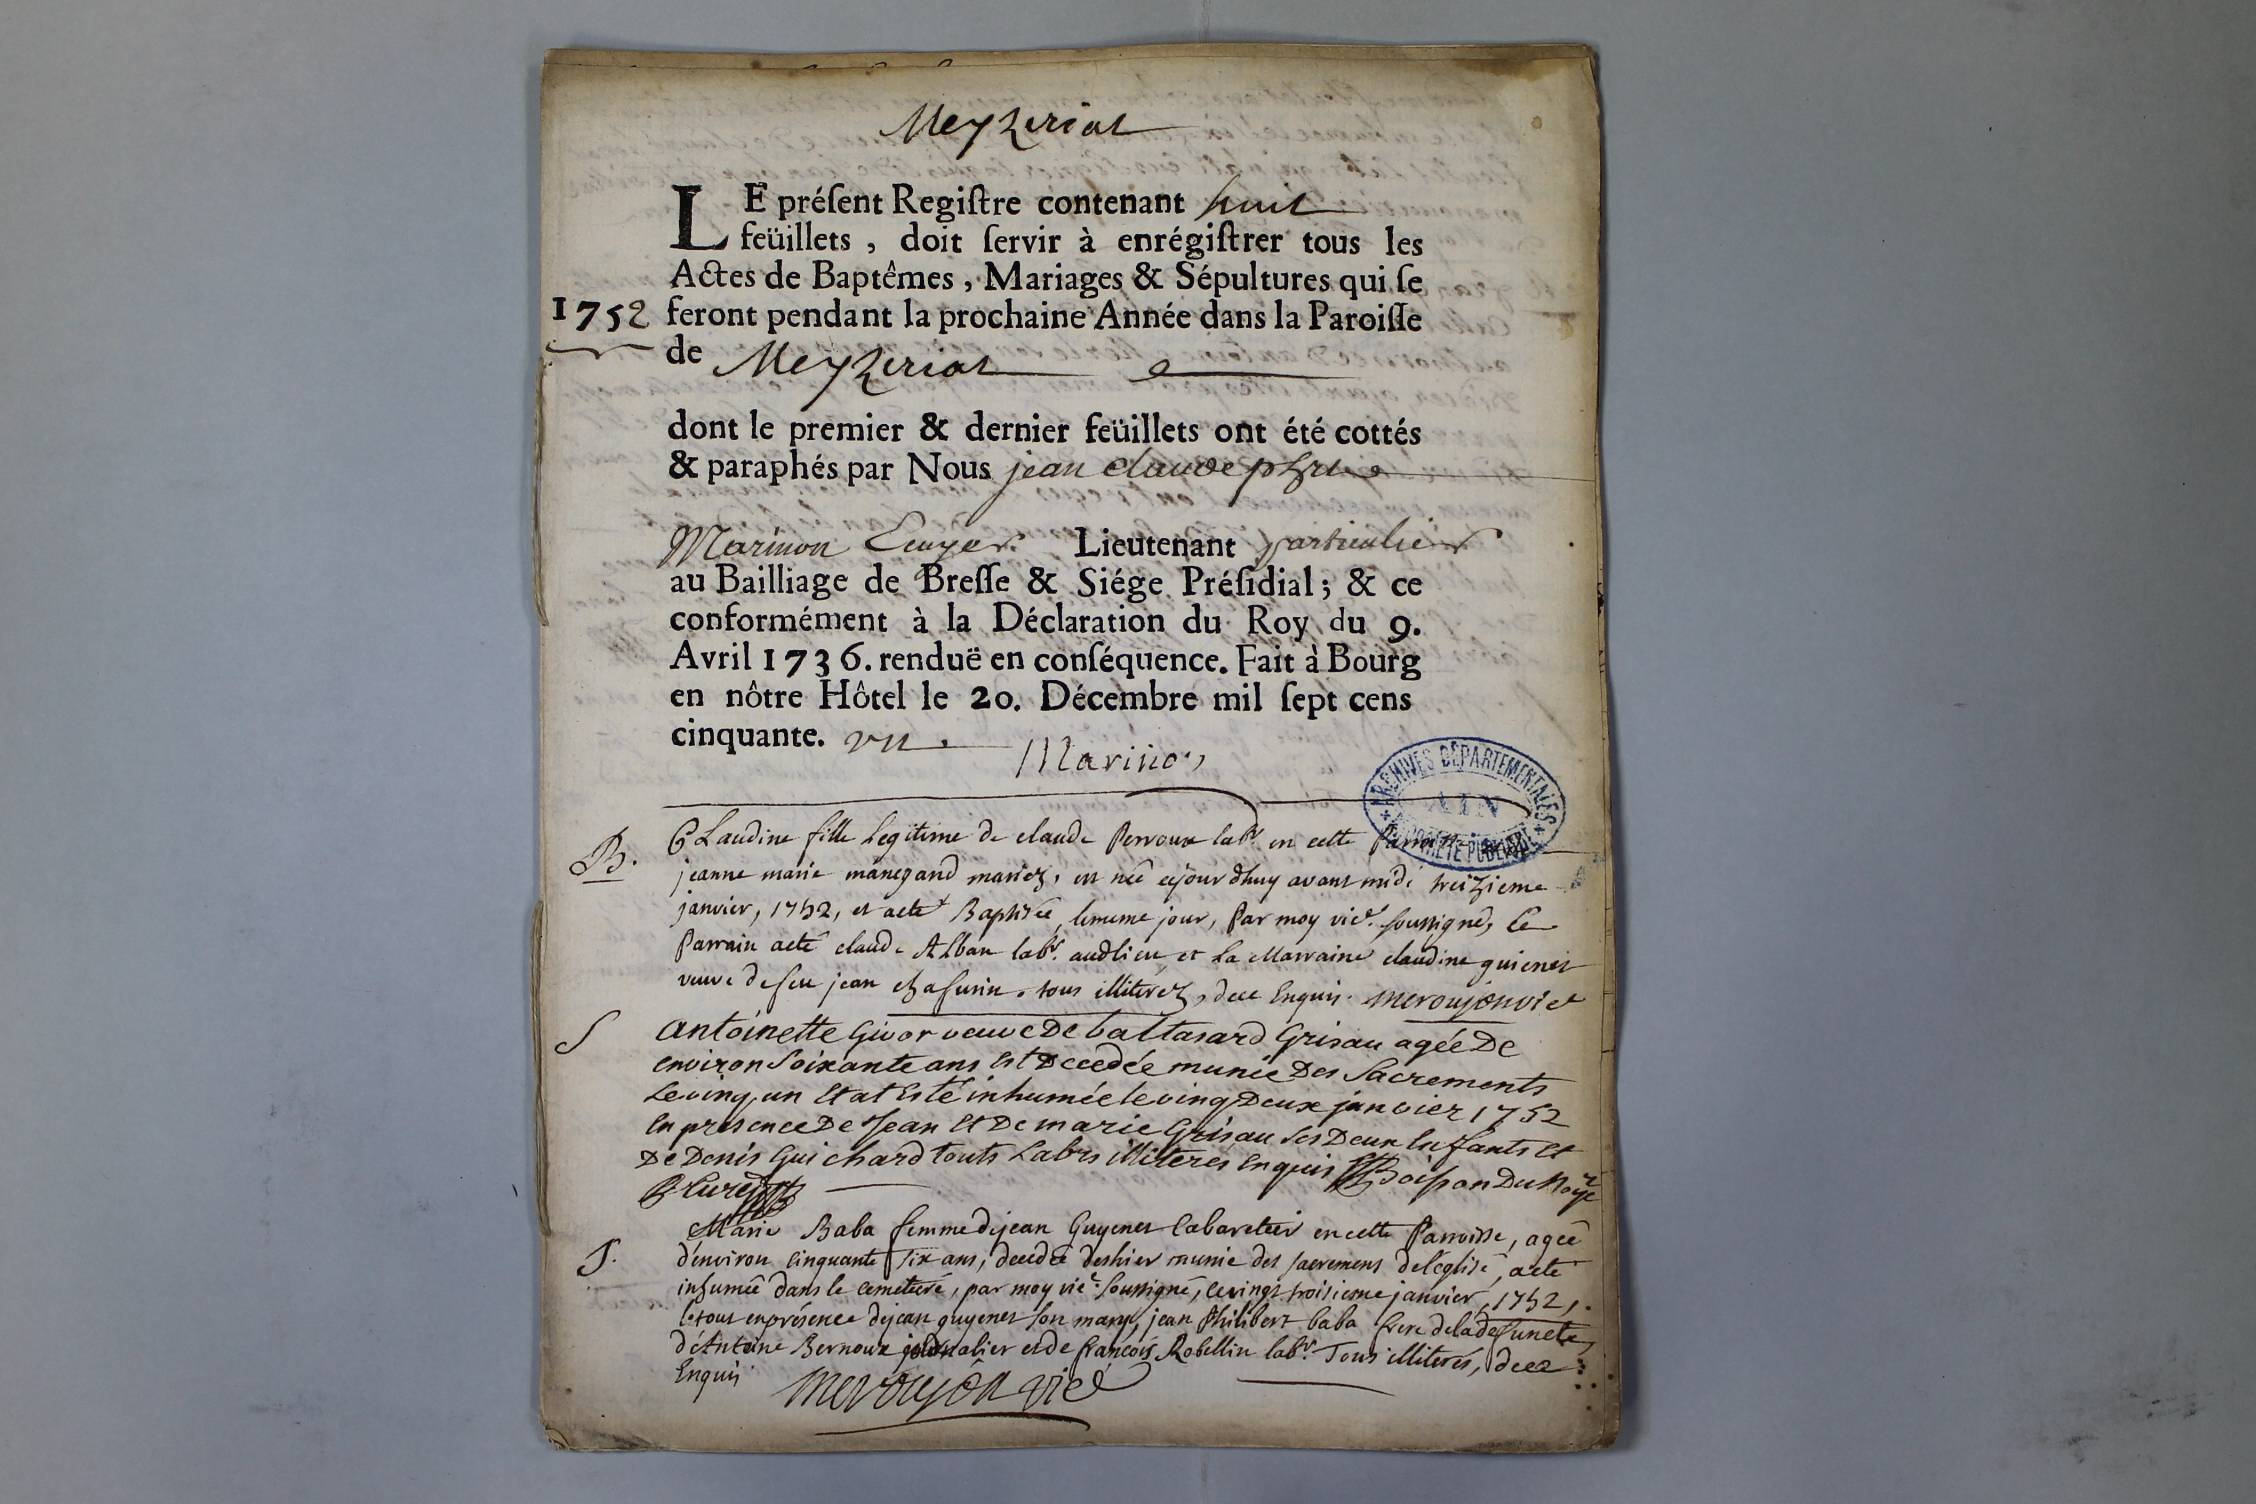 Meyzeriat
LE préſent Regiſtre contenant huit
feüillets, doit ſervir à enrégiſtrer tous les
Actes de Baptêmes, Mariages & Sépultures qui ſe
1752 feront pendant la prochaine Année dans la Paroiſſe
de Meyzeriat
dont le premier & dernier feüillets ont été cottés
& paraphés par Nous jean claude
Marinon Lieutenant particulier
au Bailliage de Breſſe & Siége Préſidial; & ce
conformément à la Déclaration du Roy du 9.
Avril 1736. renduë en conſéquence. Fait à Bourg
en nôtre Hôtel le 20. Décembre mil ſept cens
cinquante. un Marinon
ARCHIVES DÉPARTEMENTALES AIN PROPRIÉTÉ PUBLIQUE
B. Claudine fille legitime de claude Perroux labr. en cette Parroisse
jeanne marie manegand mariez, est née cejourdhuy avant midi treizieme
janvier, 1752, et aeté Baptisée, lemême jour, Par moy vicre. soussigné, Le
Parrain aeté claude Alban labr. audlieu, et La Marraine claudine guienet
veuve defeu jean chafurin. tous illiterez, dece Enquis. meroujon vic
S Antoinette Givor veuve De baltasard Grisau agée De
environ Soixante ans Est Decedée munie Des Sacrements
Le ving un Et at Esté inhumée le ving Deux janvier 1752
En presence De Jean Et De marie Grisau ses Deux Enfants Et
De Denis Guichard touts Labrs illiteres Enquis Boisson Du Noye
Curé
S. Marie Baba femme dejean Guyenet Cabaretier en cette Parroisse, ageé
d'environ Cinquante six ans, decedeé deshier munie des sacremens del'eglise, aeté
inhumeé dans le cemetiere, par moy vicre. soussigné, le vingt troisieme janvier, 1752,
le tout enprésence dejean guyenet son mary, jean Philibert baba frere deladefuncte,
d'Antoine Bernoux journalier et de francois Robellin labr. Tous illiterés, dece
Enquis meroujon vicre